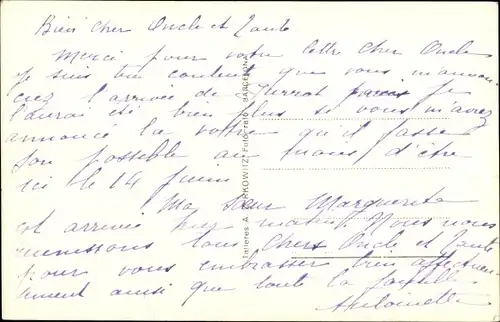 Bien cher Oncle et Tante
Merci pour votre lettre cher Oncle
Je suis bien content que vous m'annon
ciez l'arrivée de Je
l'aurai été bien plus si vous m'aviez
annoncé la votre qu'il fasse
son possible au moins d'être
ici le 14 juin
Ma sœur Marguerite
est arrivée hier matin. Nous nous
unissons tous Chers Oncle et Tante
pour vous embrasser bien affectueu
sement ainsi que toute la famille
Antoinette
Talleres A. ZERKOWITZ Fotógrafo - BARCELONA